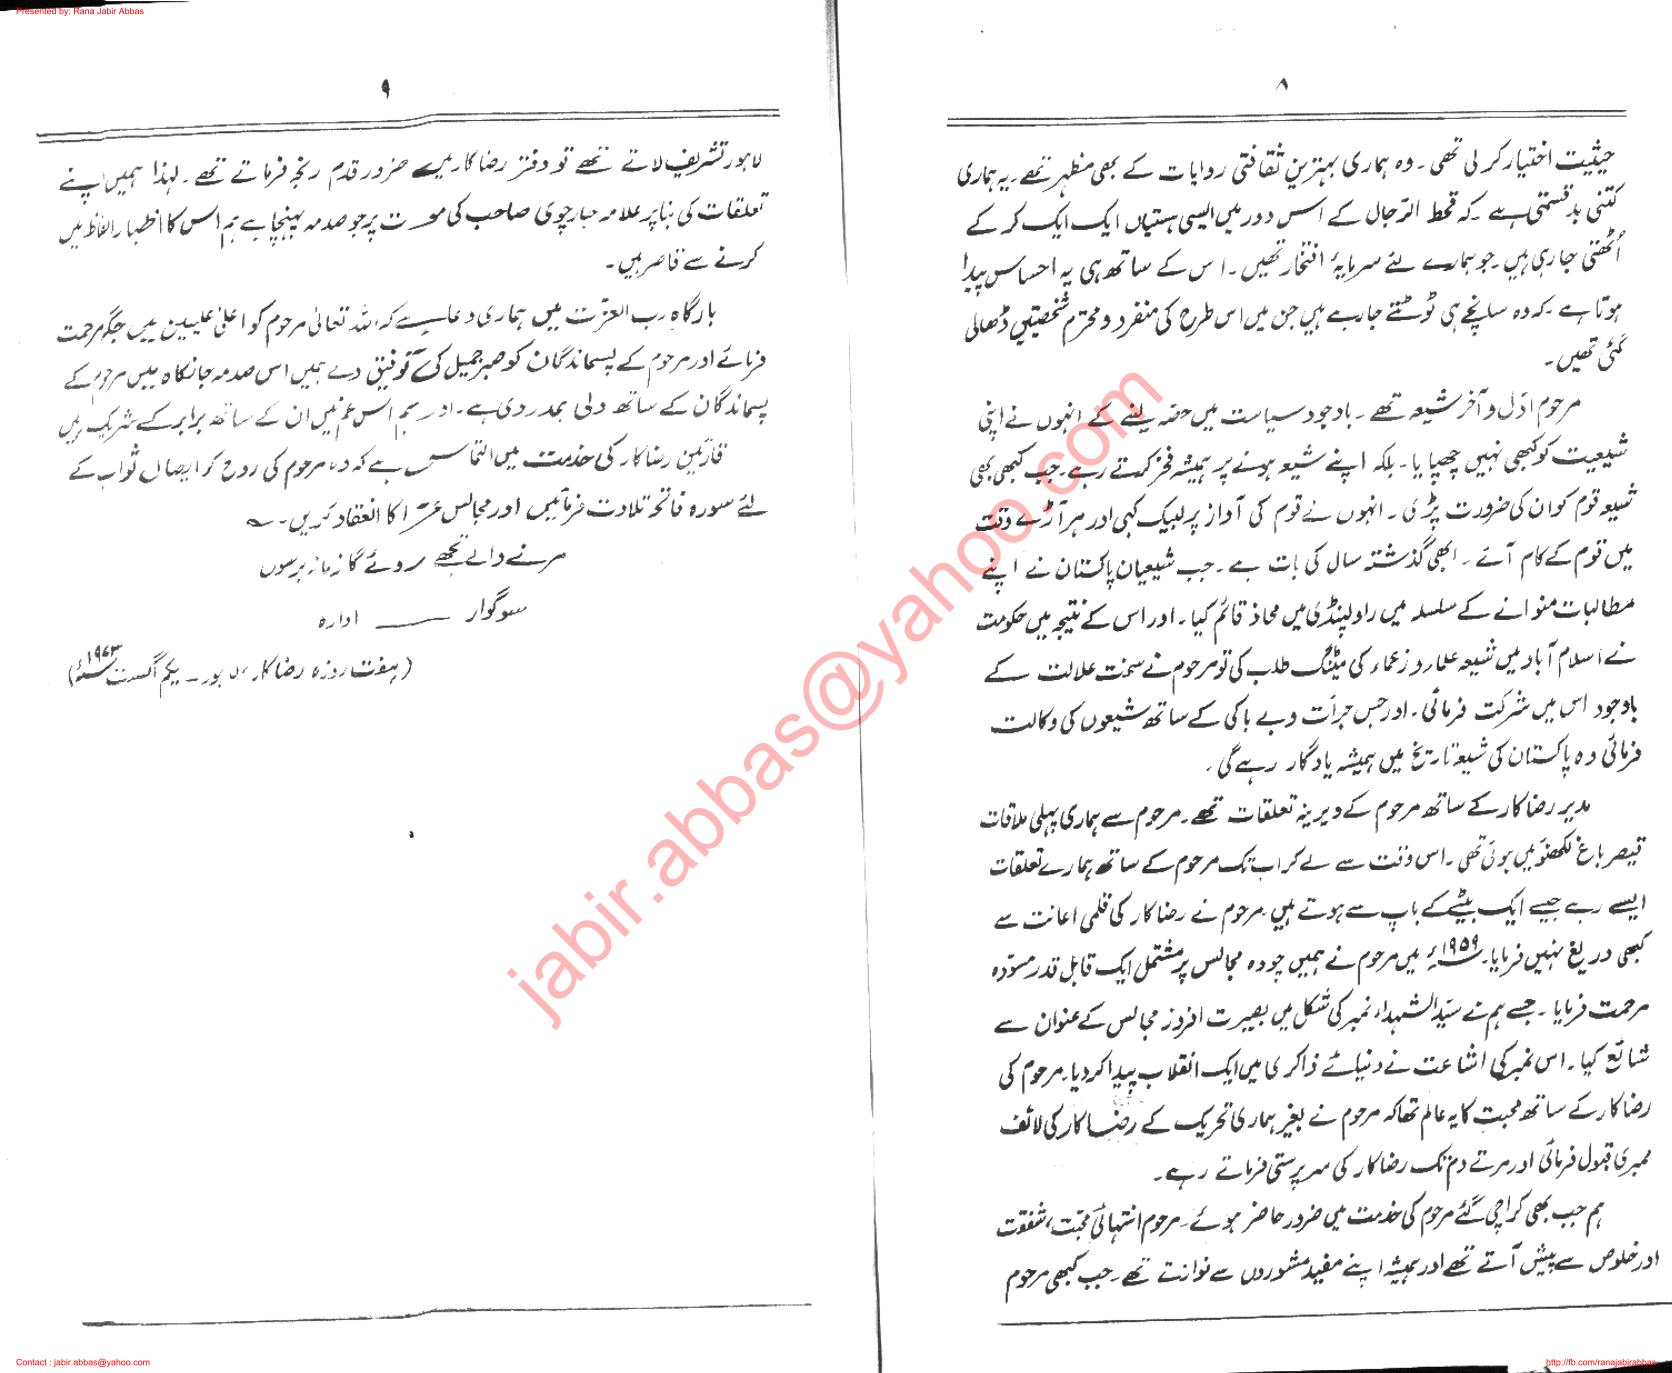 Presented by: Rana Jabir Abbas
۸
حیثیت اختیار کر لی تھی۔ وہ ہماری بہترین ثقافتی روایات کے بھی مظہر تھے۔ یہ ہماری
کتنی بدقسمتی ہے۔ کہ قحط الرّجال کے اس دور میں ایسی ہستیاں ایک ایک کر کے
اُٹھتی جا رہی ہیں۔ جو ہمارے لئے سرمایۂ افتخار تھیں۔ اس کے ساتھ ہی یہ احساس پیدا
ہوتا ہے۔ کہ وہ سانچے ہی ٹوٹتے جا رہے ہیں جن میں اس طرح کی منفرد و محترم شخصیتیں ڈھالی
گئی تھیں۔
مرحوم اوّل و آخر شیعہ تھے۔ باوجود سیاست میں حصّہ لینے کے انہوں نے اپنی
شیعیت کو کبھی نہیں چھپایا۔ بلکہ اپنے شیعہ ہونے پر ہمیشہ فخر کرتے رہے۔ جب کبھی بھی
شیعہ قوم کو ان کی ضرورت پڑی۔ انہوں نے قوم کی آواز پر لبیک کہی اور ہر آڑے وقت
میں قوم کے کام آئے۔ ابھی گذشتہ سال کی بات ہے۔ جب شیعیان پاکستان نے اپنے
مطالبات منوانے کے سلسلہ میں راولپنڈی میں محاذ قائم کیا۔ اور اس کے نتیجہ میں حکومت
نے اسلام آباد میں شیعہ علماء و زعماء کی میٹنگ طلب کی تو مرحوم نے سخت علالت کے
باوجود اس میں شرکت فرمائی۔ اور جس جرأت و بے باکی کے ساتھ شیعوں کی وکالت
فرمائی وہ پاکستان کی شیعہ تاریخ میں ہمیشہ یادگار رہے گی۔
مدیر رضاکار کے ساتھ مرحوم کے دیرینہ تعلقات تھے۔ مرحوم سے ہماری پہلی ملاقات
قیصر باغ لکھنؤ میں ہوئی تھی۔ اس وقت سے لے کر اب تک مرحوم کے ساتھ ہمارے تعلقات
ایسے رہے جیسے ایک بیٹے کے باپ سے ہوتے ہیں۔ مرحوم نے رضاکار کی قلمی اعانت سے
کبھی دریغ نہیں فرمایا۔ ۱۹۵۹ء میں مرحوم نے ہمیں چودہ مجالس پر مشتمل ایک قابل قدر مسوّدہ
مرحمت فرمایا۔ جسے ہم نے سیّد الشہداء نمبر کی شکل میں بصیرت افروز مجالس کے عنوان سے
شائع کیا۔ اس نمبر کی اشاعت نے دنیائے ذاکری میں ایک انقلاب پیدا کر دیا۔ مرحوم کی
رضاکار کے ساتھ محبت کا یہ عالم تھا کہ مرحوم نے بغیر ہماری تحریک کے رضاکار کی لائف
ممبری قبول فرمائی اور مرتے دم تک رضاکار کی سرپرستی فرماتے رہے۔
ہم جب بھی کراچی گئے مرحوم کی خدمت میں ضرور حاضر ہوئے۔ مرحوم انتہائی محبّت، شفقت
اور خلوص سے پیش آتے تھے اور ہمیشہ اپنے مفید مشوروں سے نوازتے تھے۔ جب کبھی مرحوم
۹
لاہور تشریف لاتے تھے تو دفتر رضاکار میں ضرور قدم رنجہ فرماتے تھے۔ لہٰذا ہمیں اپنے
تعلقات کی بنا پر علامہ جارچوی صاحب کی موت پر جو صدمہ پہنچا ہے ہم اس کا اظہار الفاظ میں
کرنے سے قاصر ہیں۔
بارگاہِ رب العزّت میں ہماری دعا ہے کہ اللہ تعالیٰ مرحوم کو اعلیٰ علیین میں جگہ مرحمت
فرمائے اور مرحوم کے پسماندگان کو صبر جمیل کی توفیق دے ہمیں اس صدمہ جانکاہ میں مرحوم کے
پسماندگان کے ساتھ دلی ہمدردی ہے۔ اور ہم اس غم میں ان کے ساتھ برابر کے شریک ہیں
قارئین رضاکار کی خدمت میں التماس ہے کہ وہ مرحوم کی روح کو ایصال ثواب کے
لئے سورہ فاتحہ تلاوت فرمائیں اور مجالس عزا کا انعقاد کریں۔ ؎
مرنے والے تجھے روئے گا زمانہ برسوں
سوگوار —— ادارہ
(ہفت روزہ رضاکار لاہور۔ یکم اگست ۱۹۷۳ء)
jabir.abbas@yahoo.com
Contact : jabir.abbas@yahoo.com
http://fb.com/ranajabirabbas